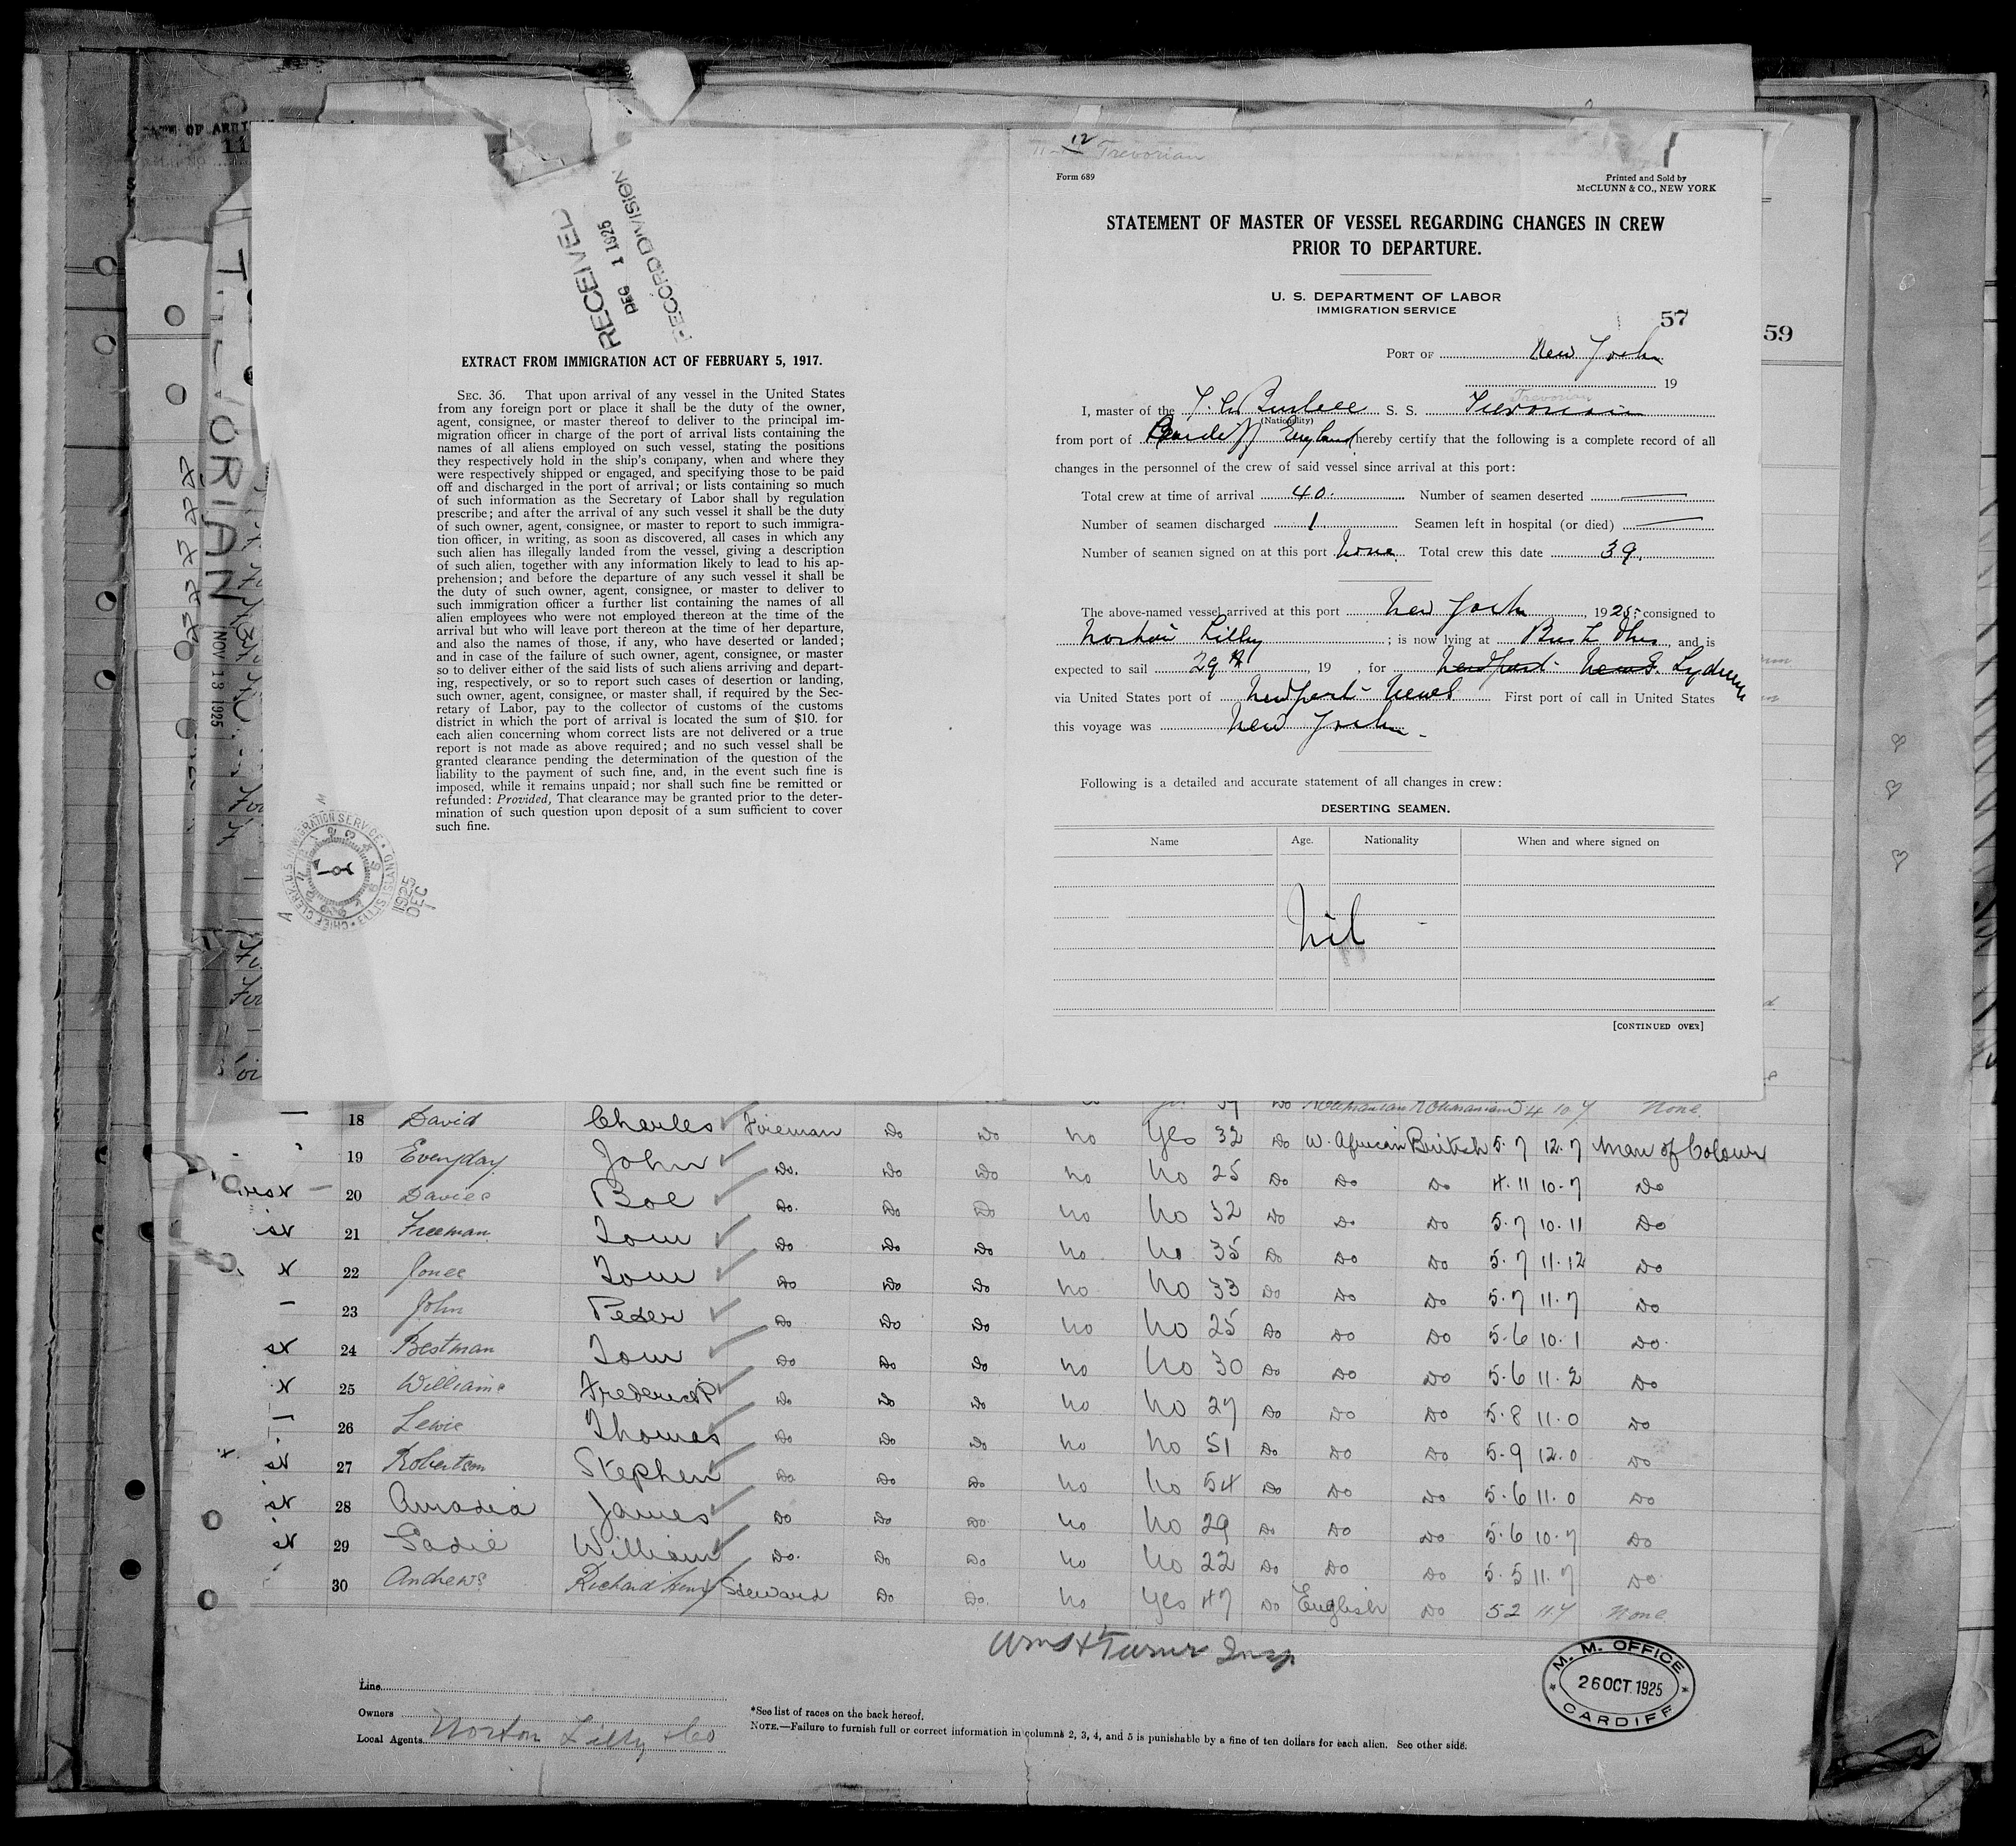 TREVORIAN
NOV 13 1925
RECEIVED
DEC 1 1925
RECORD DIVISION
EXTRACT FROM IMMIGRATION ACT OF FEBRUARY 5, 1917.
SEC. 36. That upon arrival of any vessel in the United States
from any foreign port or place it shall be the duty of the owner,
agent, consignee, or master thereof to deliver to the principal im-
migration officer in charge of the port of arrival lists containing the
names of all aliens employed on such vessel, stating the positions
they respectively hold in the ship's company, when and where they
were respectively shipped or engaged, and specifying those to be paid
off and discharged in the port of arrival; or lists containing so much
of such information as the Secretary of Labor shall by regulation
prescribe; and after the arrival of any such vessel it shall be the duty
of such owner, agent, consignee, or master to report to such immigra-
tion officer, in writing, as soon as discovered, all cases in which any
such alien has illegally landed from the vessel, giving a description
of such alien, together with any information likely to lead to his ap-
prehension; and before the departure of any such vessel it shall be
the duty of such owner, agent, consignee, or master to deliver to
such immigration officer a further list containing the names of all
alien employees who were not employed thereon at the time of the
arrival but who will leave port thereon at the time of her departure,
and also the names of those, if any, who have deserted or landed;
and in case of the failure of such owner, agent, consignee, or master
so to deliver either of the said lists of such aliens arriving and depart-
ing, respectively, or so to report such cases of desertion or landing,
such owner, agent, consignee, or master shall, if required by the Sec-
retary of Labor, pay to the collector of customs of the customs
district in which the port of arrival is located the sum of $10. for
each alien concerning whom correct lists are not delivered or a true
report is not made as above required; and no such vessel shall be
granted clearance pending the determination of the question of the
liability to the payment of such fine, and, in the event such fine is
imposed, while it remains unpaid; nor shall such fine be remitted or
refunded: Provided, That clearance may be granted prior to the deter-
mination of such question upon deposit of a sum sufficient to cover
such fine.
CHIEF CLERK, U.S. IMMIGRATION SERVICE ELLIS ISLAND
1925 DEC 1
12 Trevorian
Form 689
Printed and Sold by
McCLUNN & CO., NEW YORK
STATEMENT OF MASTER OF VESSEL REGARDING CHANGES IN CREW
PRIOR TO DEPARTURE.
U. S. DEPARTMENT OF LABOR
IMMIGRATION SERVICE
57
59
PORT OF New York
19
Trevorian
I, master of the S. S. Trevorian
(Nationality)
from port of Cardiff England hereby certify that the following is a complete record of all
changes in the personnel of the crew of said vessel since arrival at this port:
Total crew at time of arrival 40. Number of seamen deserted —
Number of seamen discharged 1. Seamen left in hospital (or died) —
Number of seamen signed on at this port none. Total crew this date 39.
The above-named vessel arrived at this port New York, 1925 consigned to
Norton Lilly; is now lying at Bush, and is
expected to sail 29th, 19 , for Newport News.
via United States port of Newport News First port of call in United States
this voyage was New York.
Following is a detailed and accurate statement of all changes in crew:
DESERTING SEAMEN.
Name Age. Nationality When and where signed on
Nil
[CONTINUED OVER]
18 David Charles Fireman Do Do no Yes 32 Do W. African British 5.7 12.7 Man of Colour
19 Everyday John Do. Do Do no No 25 Do Do Do 4.11 10.7 Do
20 Davies Boe Do. Do Do no No 32 Do Do Do 5.7 10.11 Do
21 Freeman Tom Do Do Do no No 35 Do Do Do 5.7 11.12 Do
22 Jones Tom Do Do Do no No 33 Do Do Do 5.7 11.7 Do
23 John Peter Do Do Do no No 25 Do Do Do 5.6 10.1 Do.
24 Bestman Tom Do Do Do no No 30 Do Do Do 5.6 11.2 Do
25 Williams Frederick Do Do Do no No 27 Do Do Do 5.8 11.0 Do
26 Lewis Thomas Do Do Do no No 51 Do Do Do 5.9 12.0 Do
27 Robertson Stephen Do Do Do no No 54 Do Do Do 5.6 11.0 Do
28 Amadia James Do Do Do no No 29 Do Do Do 5.6 10.7 Do
29 Sadie William Do. Do Do no No 22 Do Do Do 5.5 11.7 Do
30 Andrews Richard Henry Steward Do Do. no Yes 47 Do English Do 5 2 11.7 None
Turner Insp
M. M. OFFICE
26 OCT. 1925
CARDIFF
Line
Owners
Local Agents Norton Lilly & Co
*See list of races on the back hereof.
NOTE.—Failure to furnish full or correct information in columns 2, 3, 4, and 5 is punishable by a fine of ten dollars for each alien. See other side.